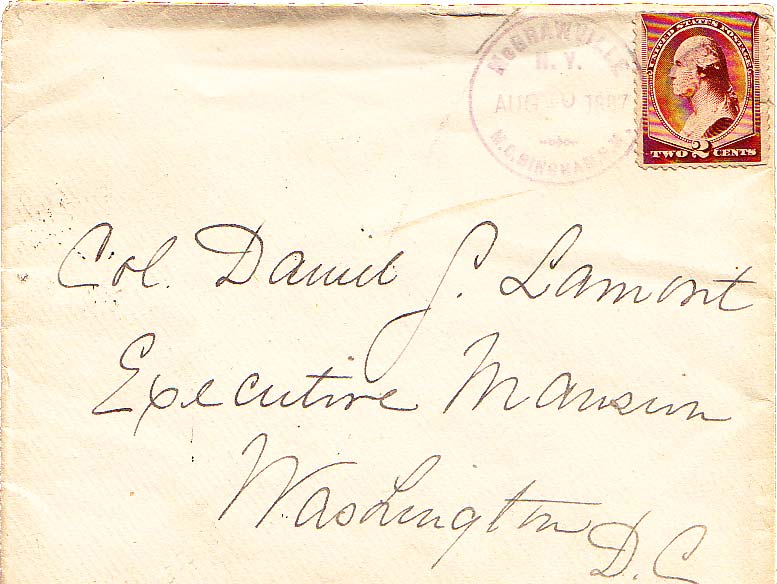 McGRAWVILLE
N. Y.
AUG 1887
M.O. BINGHAM P.M.
UNITED STATES POSTAGE
TWO 2 CENTS
Col. Daniel S. Lamont
Executive Mansion
Washington
D. C